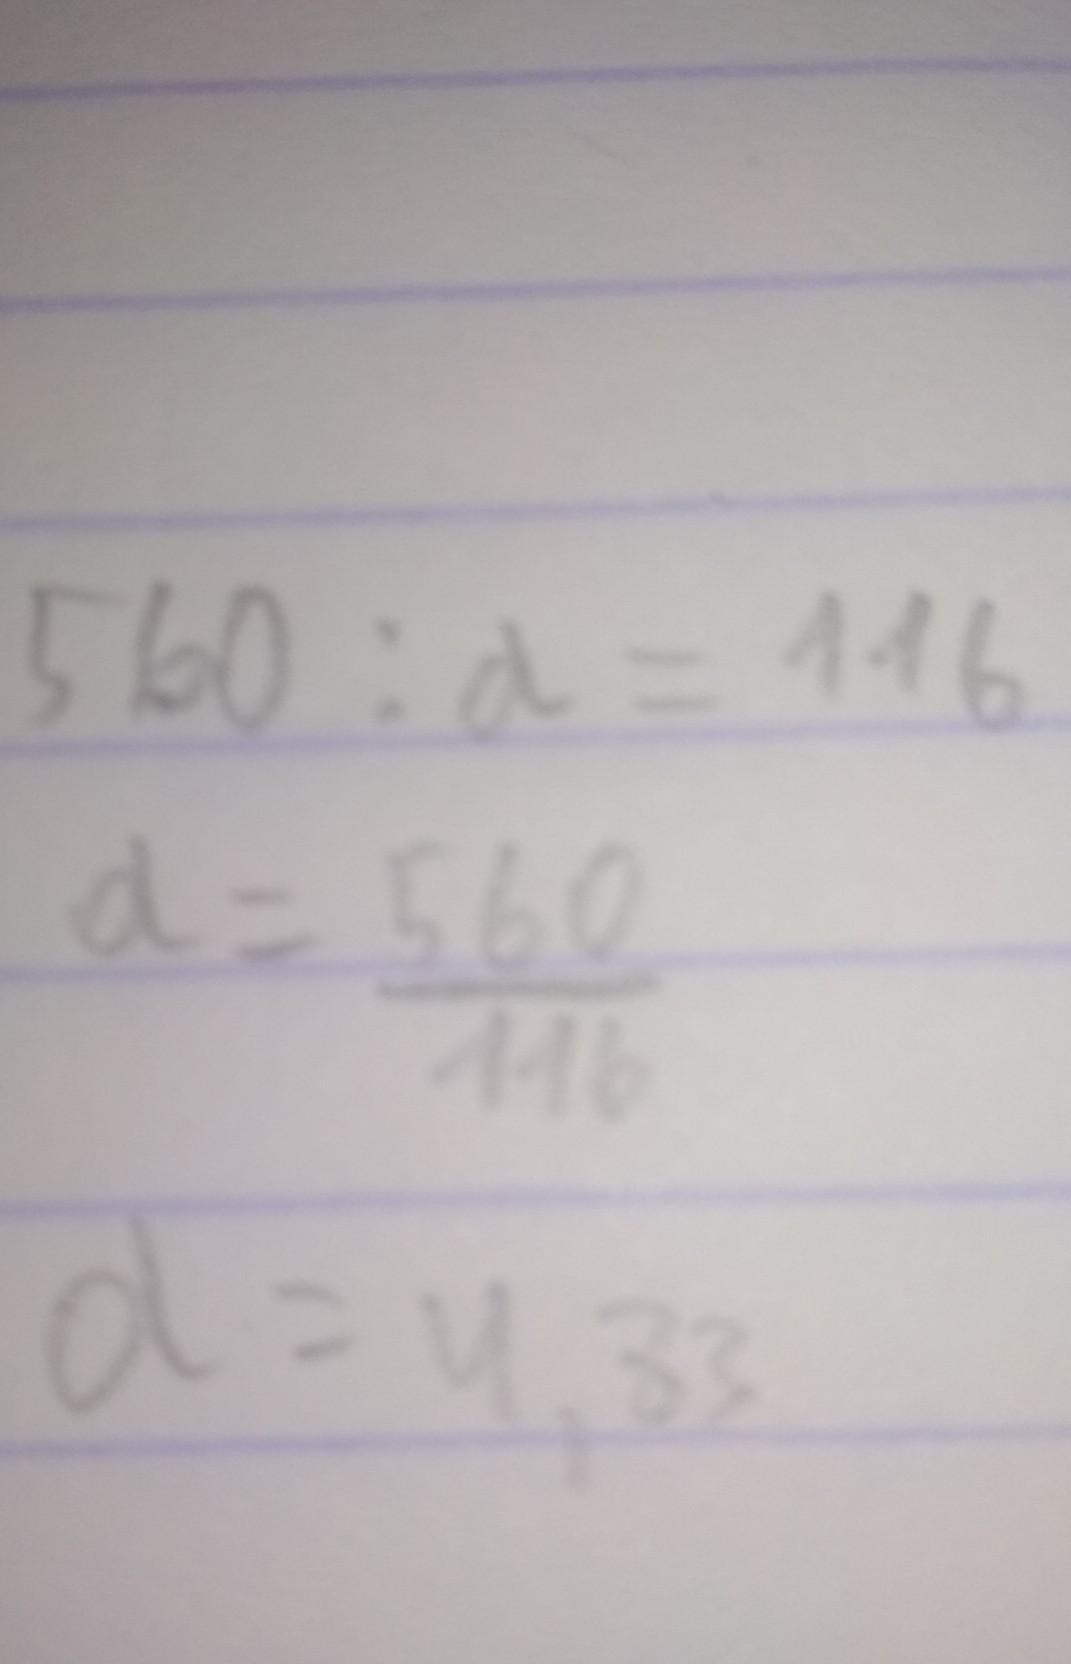 560 : d = 116
d = 560
116
d = 4,83